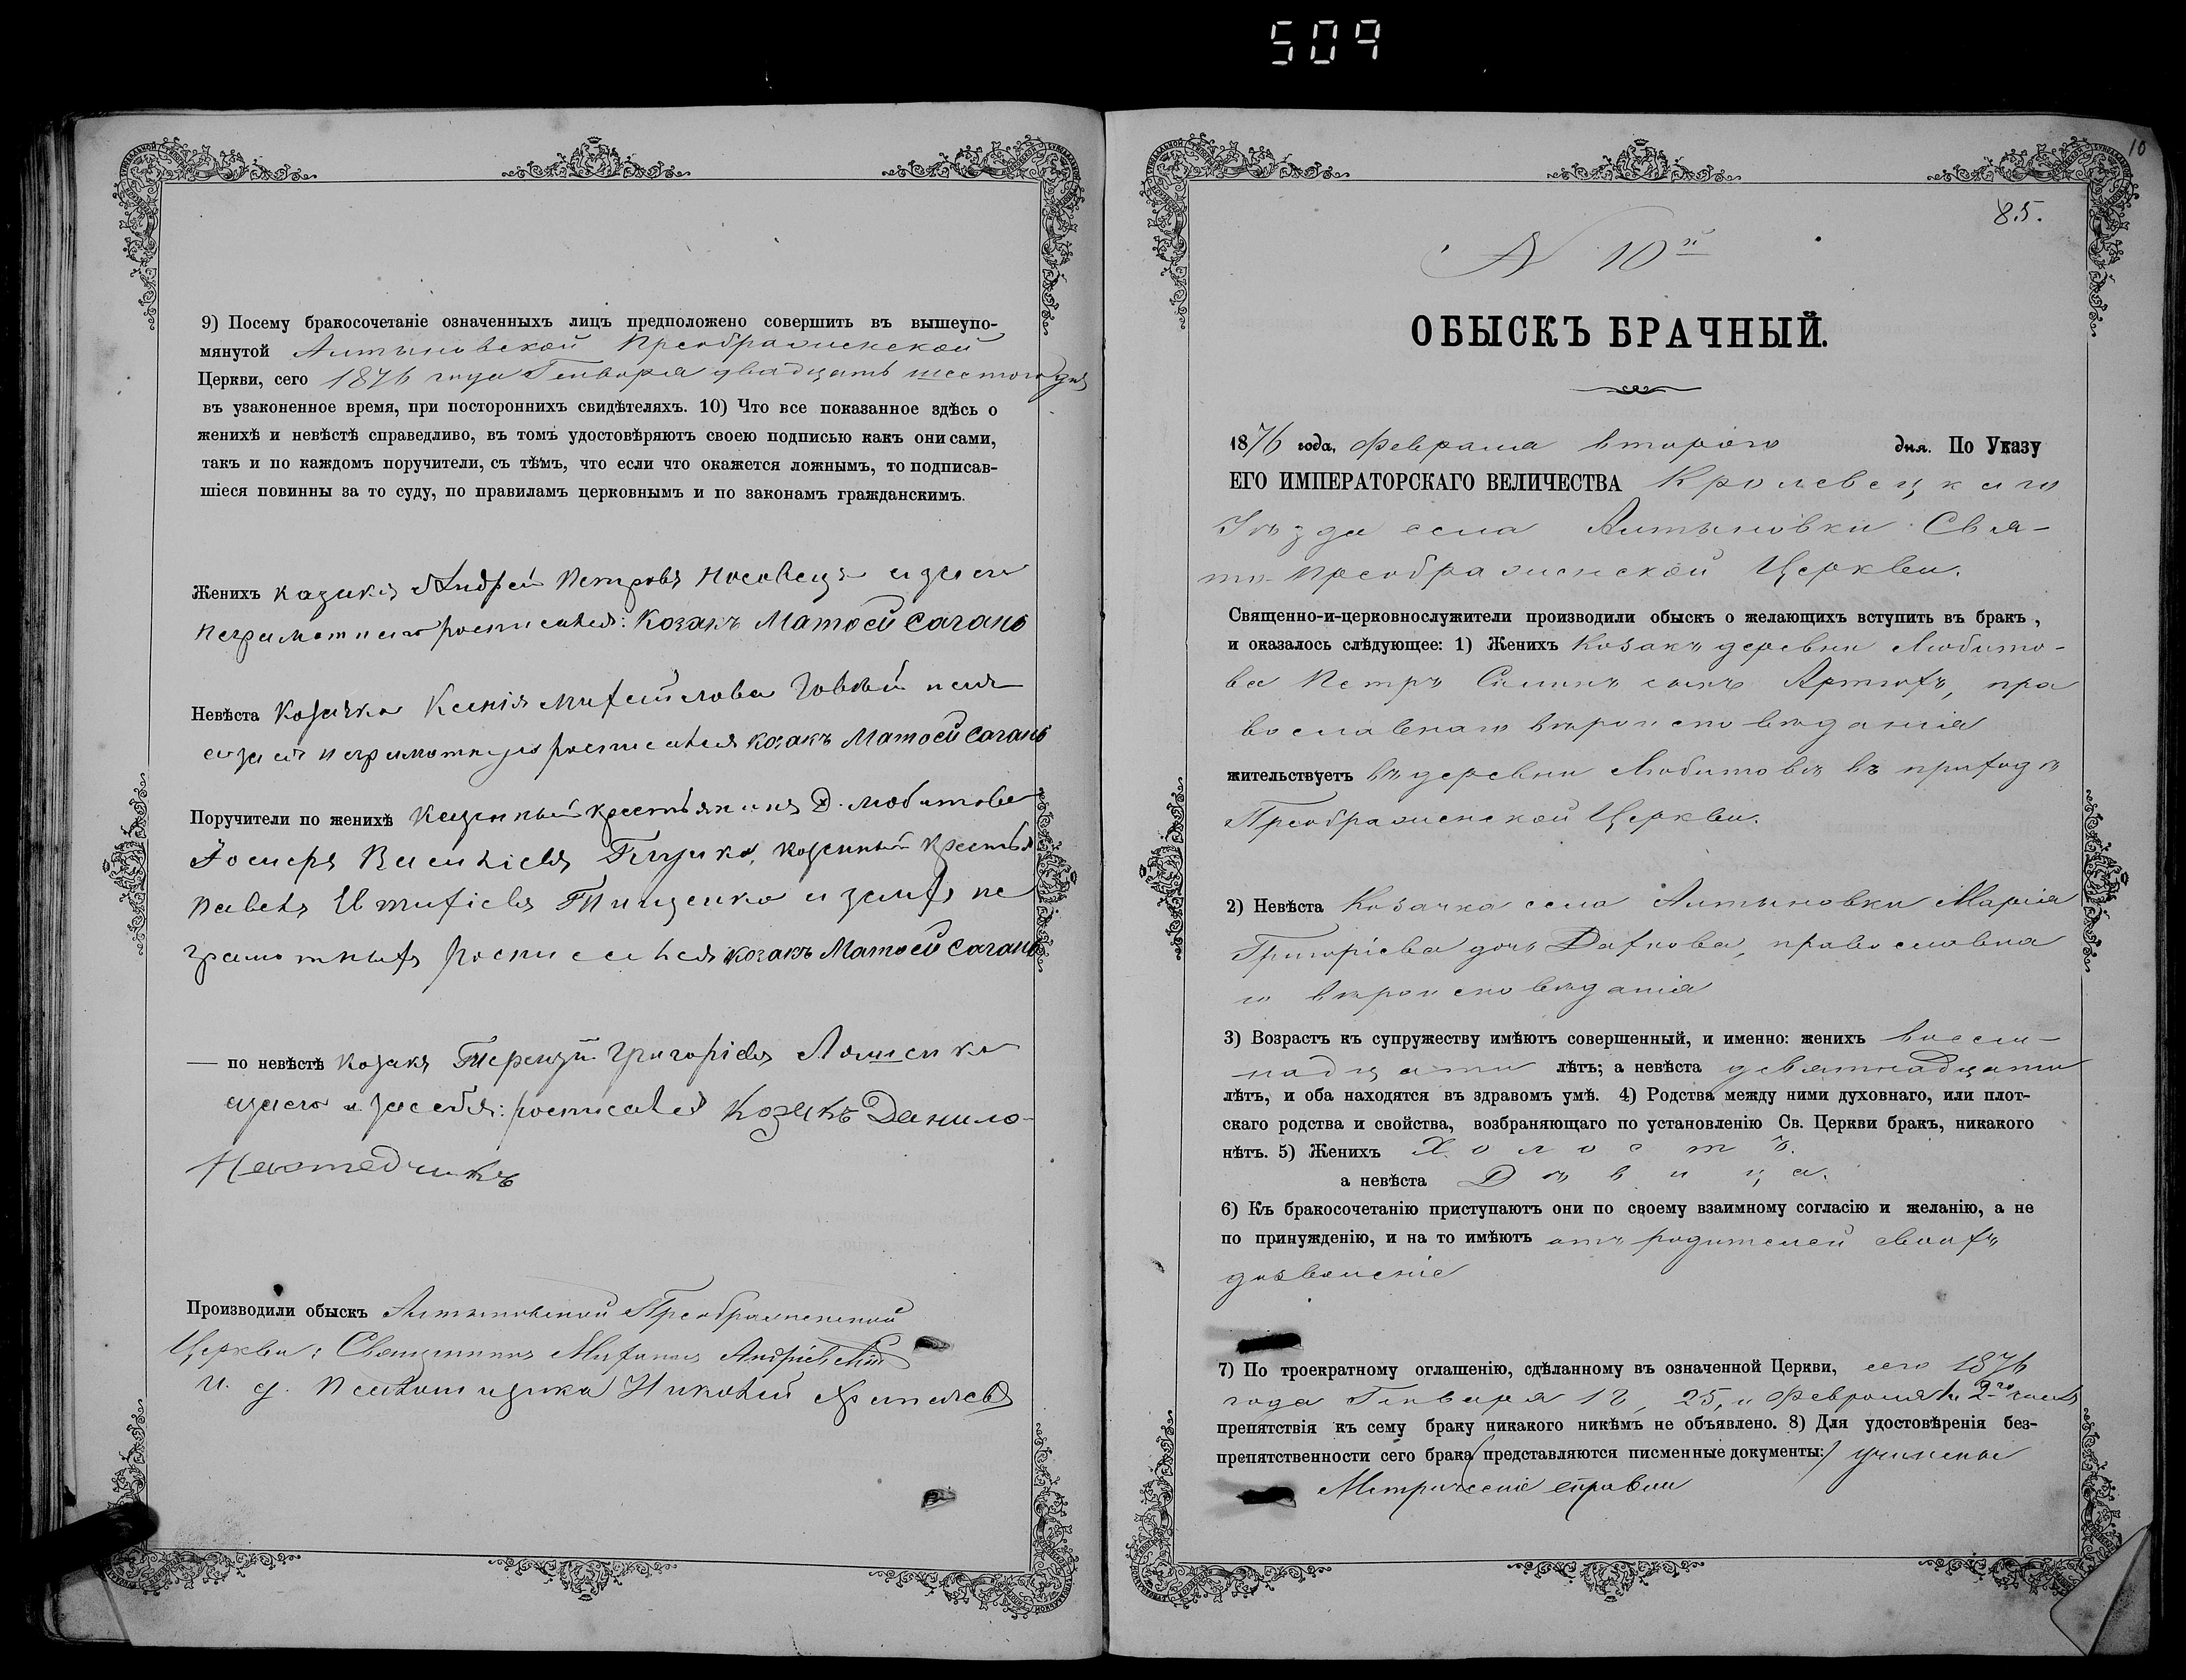 509
9) Посему бракосочетаніе означенныхъ лицъ предположено совершить въ вышеупо-
мянутой Алтыновской Преображенской
Церкви, сего 1876 года Генваря двадцать шестого дня
въ узаконенное время, при постороннихъ свидѣтеляхъ. 10) Что все показанное здѣсь о
женихѣ и невѣстѣ справедливо, въ томъ удостовѣряютъ своею подписью какъ они сами,
такъ и по каждомъ поручители, съ тѣмъ, что если что окажется ложнымъ, то подписав-
шіеся повинны за то суду, по правиламъ церковнымъ и по законамъ гражданскимъ.
Женихъ казакъ Андрей Петровъ Носовецъ а за его
неграмотнаго росписался: Козакъ Матѳей Сагань
Невѣста Козачка Ксенія Михайлова
а за ея неграмотную росписался козакъ Матѳей Сагань
Поручители по женихѣ Казенный крестьянинъ Д. Любитова
Іосифъ Васильевъ казенный крестья
Павелъ Евтихіевъ Тищенко а за ихъ не
грамотныхъ росписался козакъ Матѳей Сагань
— по невѣстѣ козакъ Терентій Григоріевъ
а за его и за себя: росписался Козакъ Данило
Производили обыскъ Алтыновской Преображенской
Церкви: Священникъ Андріевскій
И. д. Псаломщика Николай
10
85.
N 10й
ОБЫСКЪ БРАЧНЫЙ.
1876 года, Февраля второго дня. По Указу
ЕГО ИМПЕРАТОРСКАГО ВЕЛИЧЕСТВА Кролевецкаго
Уѣзда села Алтыновки Свя-
то-Преображенской Церкви.
Священно-и-церковнослужители производили обыскъ о желающихъ вступить въ бракъ,
и оказалось слѣдующее: 1) Женихъ Козакъ деревни Любито-
ва Петръ Силинъ сынъ Артюхъ, пра
вославнаго вѣроисповѣданія
жительствуетъ въ деревни Любитовѣ въ приходѣ
Преображенской Церкви.
2) Невѣста Козачка села Алтыновки Марія
Григоріева дочь Дахнова, православна
го вѣроисповѣданія
3) Возрастъ къ супружеству имѣютъ совершенный, и именно: женихъ восем-
надцати лѣтъ; а невѣста девятнадцати
лѣтъ, и оба находятся въ здравомъ умѣ. 4) Родства между ними духовнаго, или плот-
скаго родства и свойства, возбраняющаго по установленію Св. Церкви бракъ, никакого
нѣтъ. 5) Женихъ Холостъ.
а невѣста Дѣвица.
6) Къ бракосочетанію приступаютъ они по своему взаимному согласію и желанію, а не
по принужденію, и на то имѣютъ отъ родителей своихъ
дозволеніе
7) По троекратному оглашенію, сдѣланному въ означенной Церкви, сего 1876
года Генваря 18, 25, и Февраля 2го
препятствія къ сему браку никакого никѣмъ не объявлено. 8) Для удостовѣренія без-
препятственности сего брака (представляются писменные документы:) учинены
Метрическіе справки